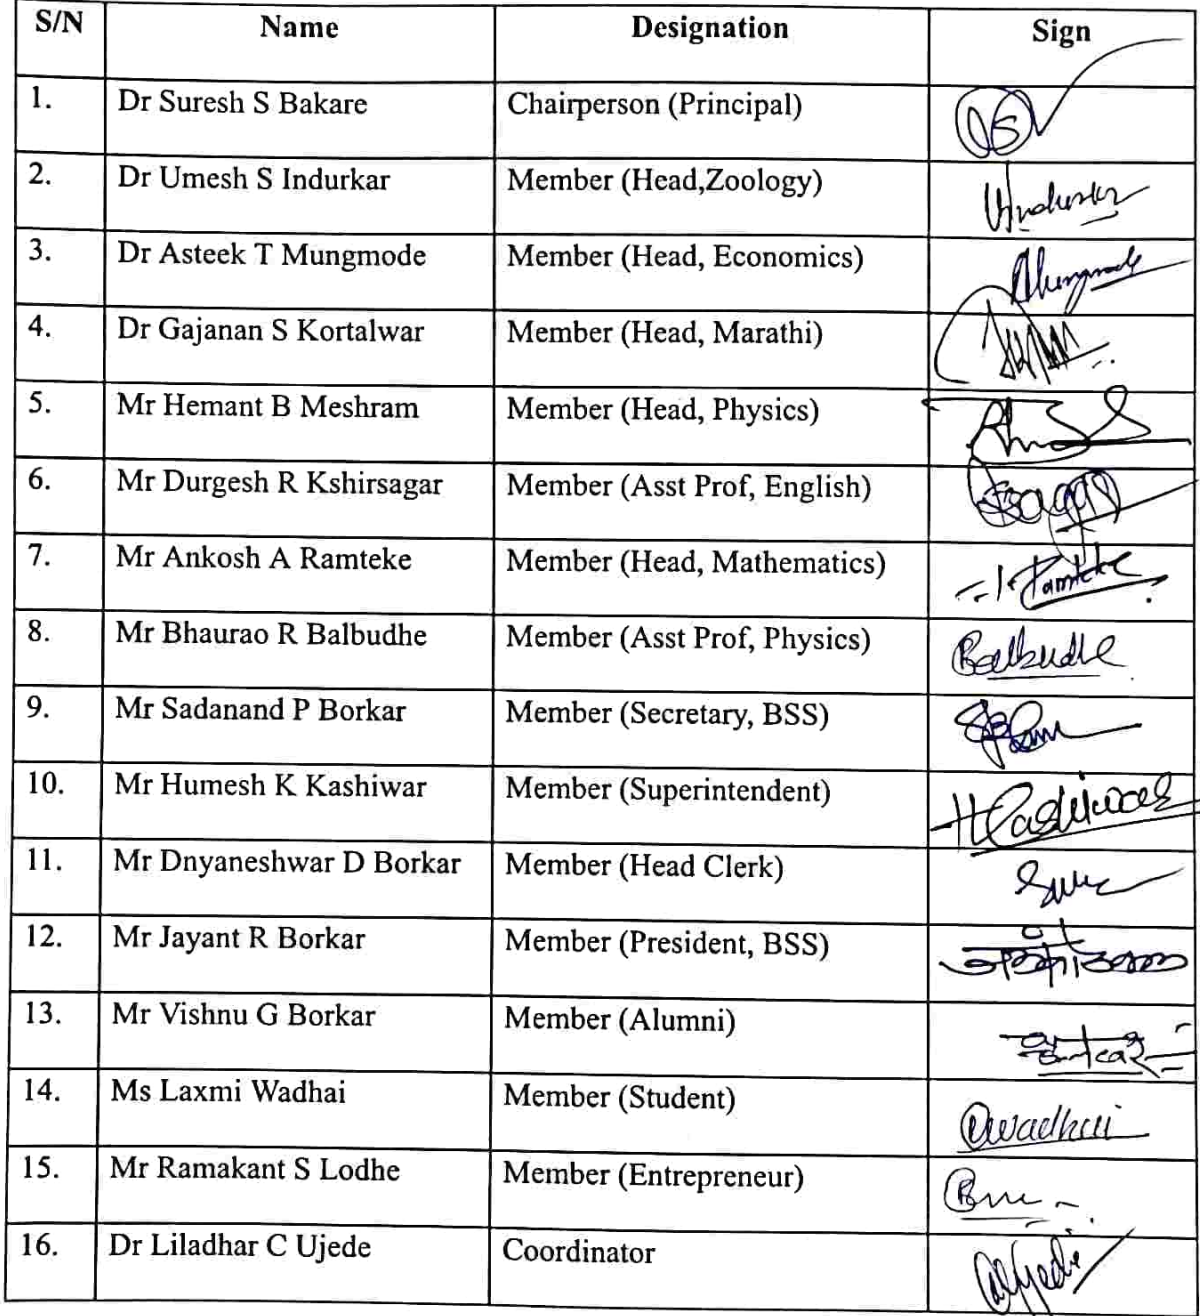 S/N Name Designation Sign
1. Dr Suresh S Bakare Chairperson (Principal)
2. Dr Umesh S Indurkar Member (Head,Zoology)
3. Dr Asteek T Mungmode Member (Head, Economics)
4. Dr Gajanan S Kortalwar Member (Head, Marathi)
5. Mr Hemant B Meshram Member (Head, Physics)
6. Mr Durgesh R Kshirsagar Member (Asst Prof, English)
7. Mr Ankosh A Ramteke Member (Head, Mathematics) Ramteke
8. Mr Bhaurao R Balbudhe Member (Asst Prof, Physics) Balbudhe
9. Mr Sadanand P Borkar Member (Secretary, BSS)
10. Mr Humesh K Kashiwar Member (Superintendent)
11. Mr Dnyaneshwar D Borkar Member (Head Clerk)
12. Mr Jayant R Borkar Member (President, BSS)
13. Mr Vishnu G Borkar Member (Alumni)
14. Ms Laxmi Wadhai Member (Student)
15. Mr Ramakant S Lodhe Member (Entrepreneur)
16. Dr Liladhar C Ujede Coordinator